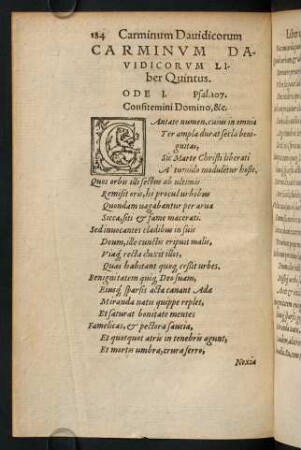 184 Carminum Dauidicorum
CARMINVM DA-
VIDICORVM LI-
ber Quintus.
ODE I. Psal.107.
Confitemini Domino, &c.
CAntate numen, cuius in omnia
Ter ampla durat secla beni-
gnitas,
Sic Marte Christi liberati
A' tumido modulētur hoste,
Quos orbis illi sectus ab vltimis
Remisit oris, hi procul vrbibus
Quondam vagabantur per arua
Sicca, siti & fame macerati.
Sed inuocantes cladibus in suis
Deum, ille cunctis eripuit malis,
Viaq́; recta duxit illos,
Quas habitant quoq; ersit vrbes.
Benignitatem quiq; Dei suam,
Eiusq́; sparsis acta canant Adæ
Miranda natis quippe replet,
Et saturat bonitate mentes
Famelicas, & pectora saucia,
Et quotquot atris in tenebris agunt,
Et mortis vmbra, crura ferro,
Noxia
Libri